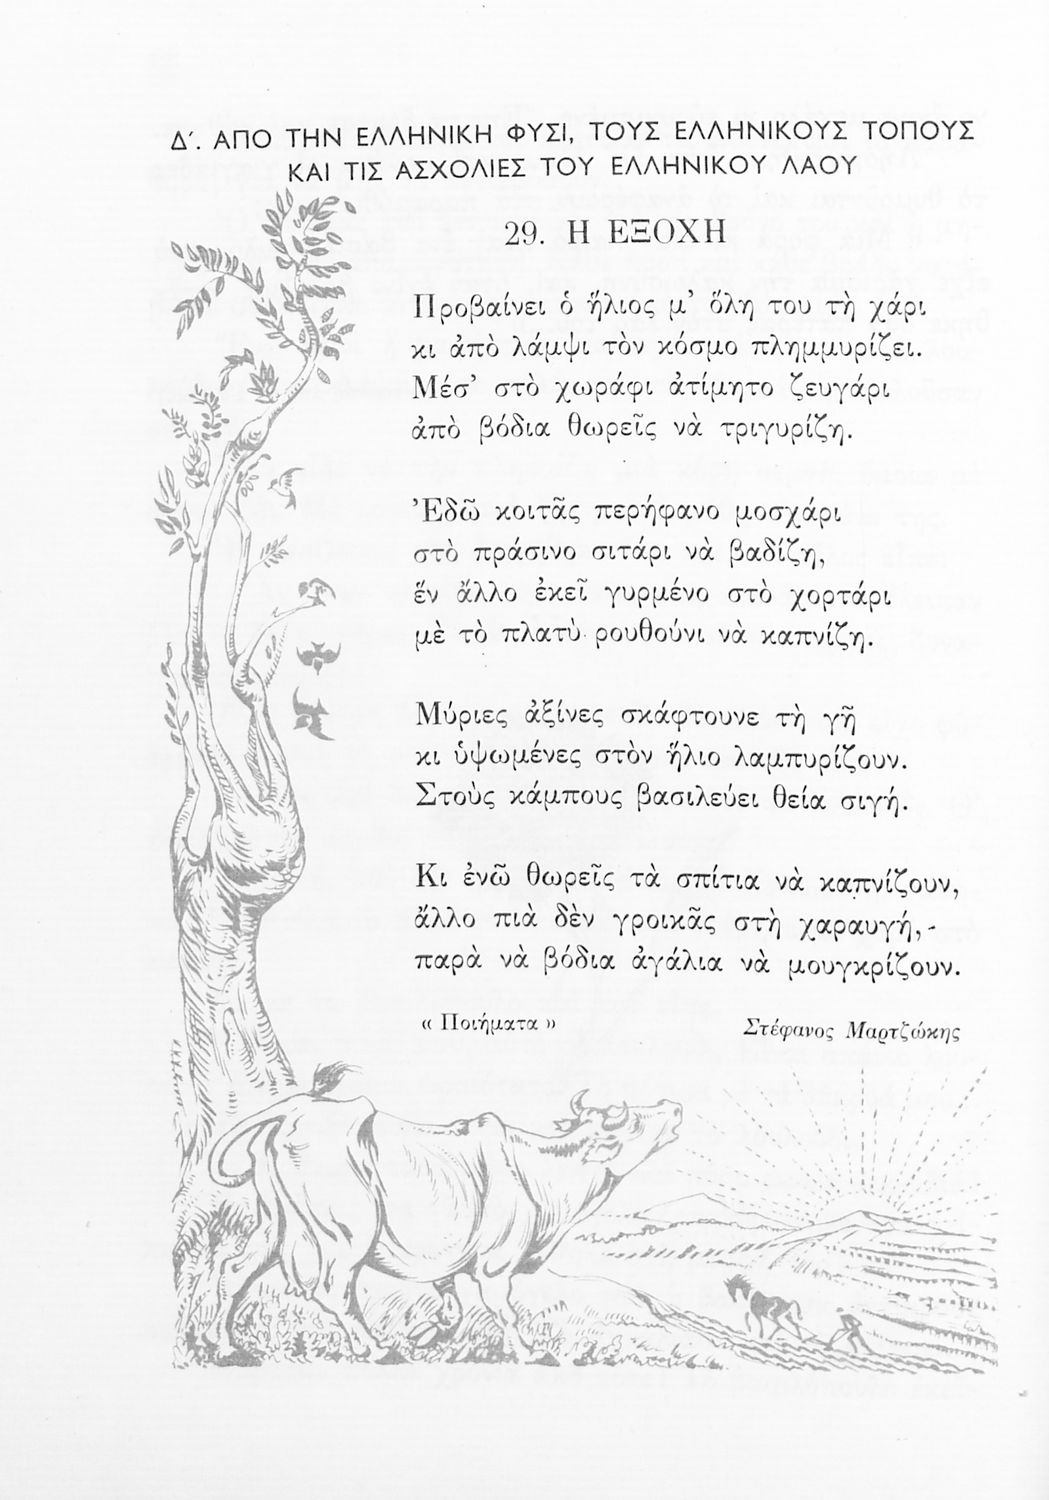 Δ΄. ΑΠΟ ΤΗΝ ΕΛΛΗΝΙΚΗ ΦΥΣΙ, ΤΟΥΣ ΕΛΛΗΝΙΚΟΥΣ ΤΟΠΟΥΣ
ΚΑΙ ΤΙΣ ΑΣΧΟΛΙΕΣ ΤΟΥ ΕΛΛΗΝΙΚΟΥ ΛΑΟΥ
29. Η ΕΞΟΧΗ
Προβαίνει ὁ ἥλιος μ’ ὅλη του τὴ χάρι
κι ἀπὸ λάμψι τὸν κόσμο πλημμυρίζει.
Μέσ’ στὸ χωράφι ἀτίμητο ζευγάρι
ἀπὸ βόδια θωρεῖς νὰ τριγυρίζη.
Ἐδῶ κοιτᾶς περήφανο μοσχάρι
στὸ πράσινο σιτάρι νὰ βαδίζη,
ἕν ἄλλο ἐκεῖ γυρμένο στὸ χορτάρι
μὲ τὸ πλατὺ ρουθούνι νὰ καπνίζη.
Μύριες ἀξίνες σκάφτουνε τὴ γῆ
κι ὑψωμένες στὸν ἥλιο λαμπυρίζουν.
Στοὺς κάμπους βασιλεύει θεία σιγή.
Κι ἐνῶ θωρεῖς τὰ σπίτια νὰ καπνίζουν,
ἄλλο πιὰ δὲν γροικᾶς στὴ χαραυγή,-
παρὰ νὰ βόδια ἀγάλια νὰ μουγκρίζουν.
« Ποιήματα » Στέφανος Μαρτζώκης